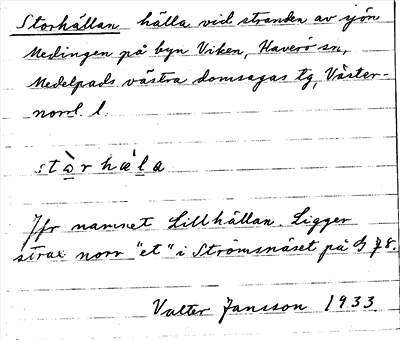 Storhällan hälla vid stranden av sjön
Medingen på byn Viken, Haverö sn,
Medelpads västra domsagas tg, Väster-
norrl. l.
stὰrhæ'la
Jfr namnet Lillhällan. Ligger
strax norr "et" i Strömsnäset på G 78.
Valter Jansson 1933.